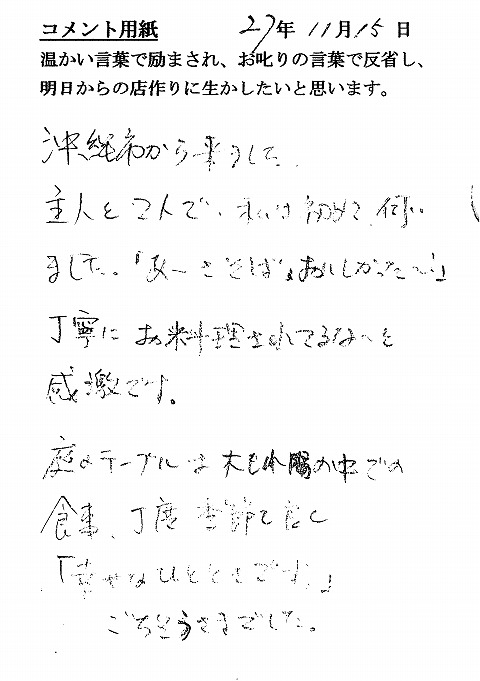 コメント用紙 27年11月15日
温かい言葉で励まされ、お叱りの言葉で反省し、
明日からの店作りに生かしたいと思います。
沖縄市から来ました。
主人と2人で、私は初めて伺い
ました。「あ〜さそば」おいしかった〜!」
丁寧にお料理されてるな〜と
感激です。
庭のテーブルは木もれ陽の中での
食事、丁度季節も良く
「幸せなひとときです。」
ごちそうさまでした。